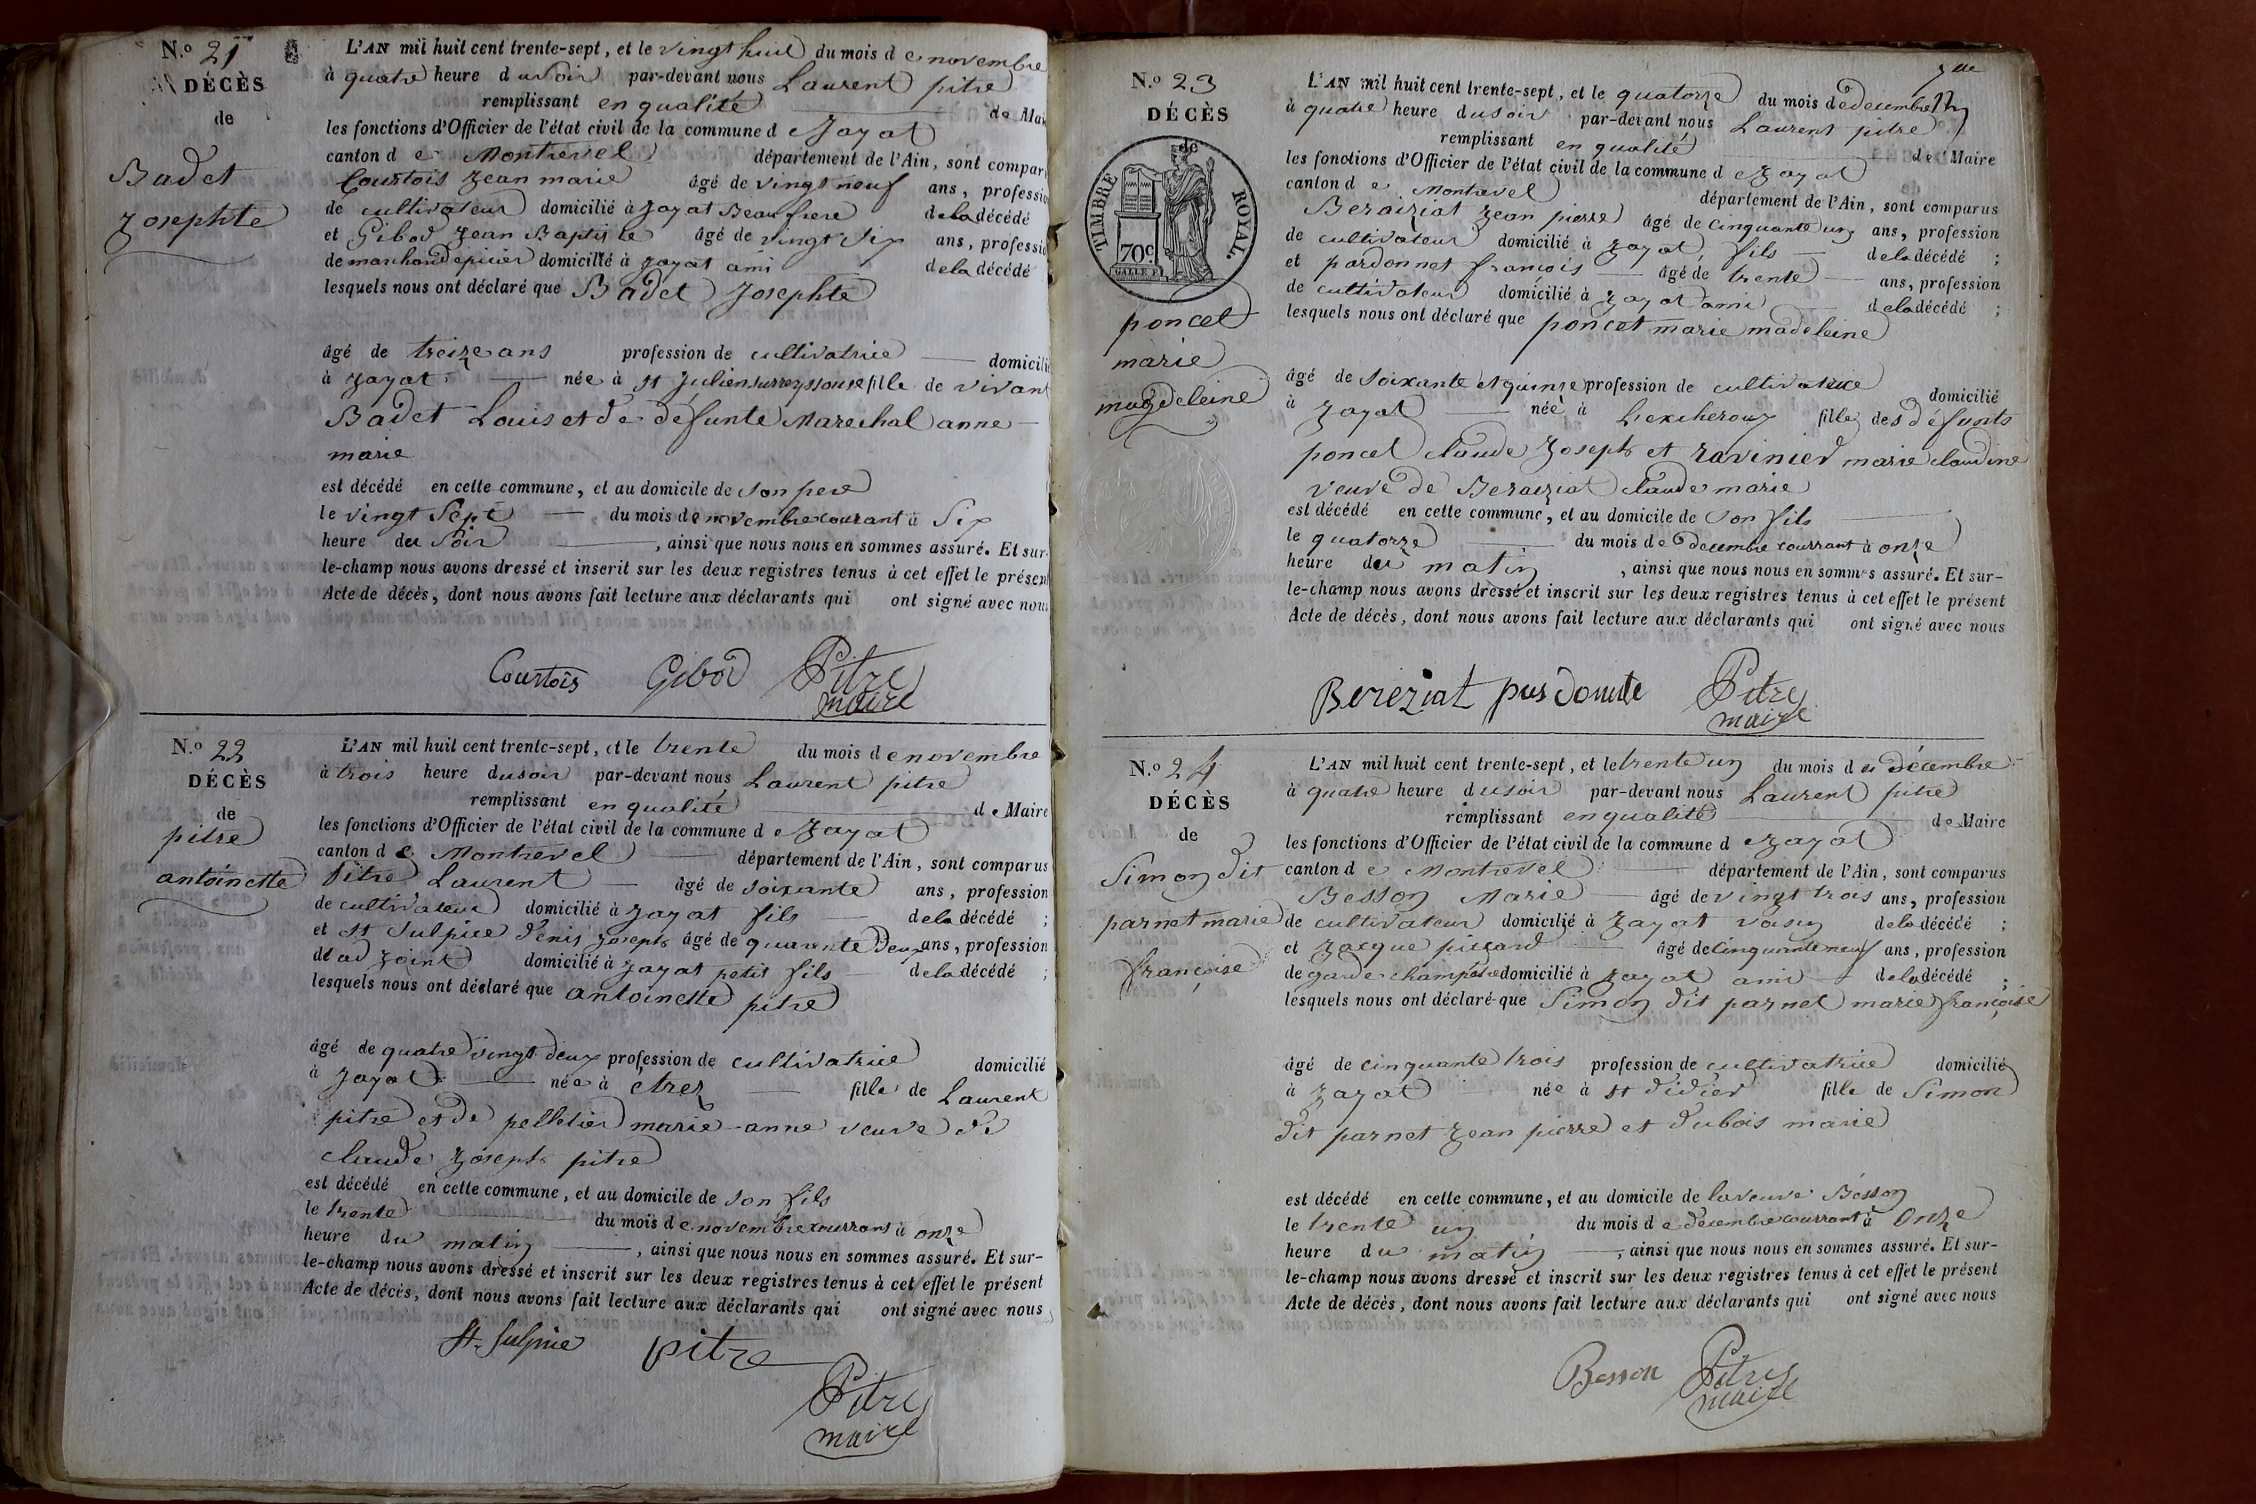 N.o 21
DÉCÈS
de
Badet
Josephte
L'AN mil huit cent trente-sept, et le vingt huit du mois d e novembre
à quatre heure d u soir par-devant nous Laurent pitre
remplissant en qualité de Mai
les fonctions d'Officier de l'état civil de la commune d e Jayat
canton d e Montrevel département de l'Ain, sont compar
Courtois Jean marie âgé de vingt neuf ans, professio
de cultivateur domicilié à Jayat Beaufrere de la décédé
et Gibod Jean Baptiste âgé de vingt Six ans, professio
de marchand epicier domicilié à Jayat ami de la décédé
lesquels nous ont déclaré que Badet Josephte
âgé de treize ans profession de cultivatrice domicilié
à Jayat née à st Julien surreyssouse fille de vivant
Badet Louis et de défunte Marechal anne
marie
est décédé en cette commune, et au domicile de son pere
le vingt Sept du mois de novembre courant à Six
heure du Soir, ainsi que nous nous en sommes assuré. Et sur-
le-champ nous avons dressé et inscrit sur les deux registres tenus à cet effet le présent
Acte de décès, dont nous avons fait lecture aux déclarants qui ont signé avec nous
Courtois Gibod Pitre
maire
N.o 22
DÉCÈS
de
pitre
antoinette
L'AN mil huit cent trente-sept, et le trente du mois d e novembre
à trois heure du soir par-devant nous Laurent pitre
remplissant en qualité d e Maire
les fonctions d'Officier de l'état civil de la commune d e Jayat
canton d e Montrevel département de l'Ain, sont comparus
Pitre Laurent âgé de soixante ans, profession
de cultivateur domicilié à Jayat fils de la décédé ;
et st Sulpice Denis Joseph âgé de quarante Deux ans, profession
d adjoint domicilié à Jayat petit fils de la décédé ;
lesquels nous ont déclaré que antoinette pitre
âgé de quatre vingt deux profession de cultivatrice domicilié
à Jayat née à etrez fille de Laurent
pitre et de pelletier marie-anne veuve de
claude Joseph pitre
est décédé en cette commune, et au domicile de son fils
le trente du mois de novembre courrant à onze
heure du matin, ainsi que nous nous en sommes assuré. Et sur-
le-champ nous avons dressé et inscrit sur les deux registres tenus à cet effet le présent
Acte de décès, dont nous avons fait lecture aux déclarants qui ont signé avec nous
St. Sulpice pitre
Pitre
maire
N.o 23
DÉCÈS
de
TIMBRE ROYAL.
70c
poncet
marie
magdeleine
L'AN mil huit cent trente-sept, et le quatorze du mois de decembre
à quatre heure du soir par-devant nous Laurent pitre
remplissant en qualité de Maire
les fonctions d'Officier de l'état civil de la commune d e Jayat
canton d e Montrevel département de l'Ain, sont comparus
Beraiziat Jean pierre âgé de cinquante un ans, profession
de cultivateur domicilié à Jayat, fils de la décédé ;
et pardonnet francois âgé de trente ans, profession
de cultivateur domicilié à Jayat ami de la décédé ;
lesquels nous ont déclaré que poncet marie madeleine
âgé de soixante et quinze profession de cultivatrice domicilié
à Jayat née à Lexcheroux fille des défunts
poncet claude Joseph et ravinier marie claudine
veuve de Beraiziat claude marie
est décédé en cette commune, et au domicile de son fils
le quatorze du mois de decembre courrant à onze
heure du matin, ainsi que nous nous en sommes assuré. Et sur-
le-champ nous avons dressé et inscrit sur les deux registres tenus à cet effet le présent
Acte de décès, dont nous avons fait lecture aux déclarants qui ont signé avec nous
Bereziat Pitre
maire
N.o 24
DÉCÈS
de
Simon dit
parnet marie
françoise
L'AN mil huit cent trente-sept, et le trente un du mois d e décembre
à quatre heure du soir par-devant nous Laurent pitre
remplissant en qualité de Maire
les fonctions d'Officier de l'état civil de la commune d e Jayat
canton d e Montrevel département de l'Ain, sont comparus
Besson Marie âgé de vingt trois ans, profession
de cultivateur domicilié à Jayat voisin de la décédé ;
et Jacque piccard âgé de cinquante neuf ans, profession
de garde champetre domicilié à Jayat ami de la décédé ;
lesquels nous ont déclaré que Simon dit parnet marie françoise
âgé de cinquante trois profession de cultivatrice domicilié
à Jayat née à st didier fille de Simon
dit parnet Jean pierre et dubois marie
est décédé en cette commune, et au domicile de la veuve Besson
le trente un du mois de decembre courrant à onze
heure du matin, ainsi que nous nous en sommes assuré. Et sur-
le-champ nous avons dressé et inscrit sur les deux registres tenus à cet effet le présent
Acte de décès, dont nous avons fait lecture aux déclarants qui ont signé avec nous
Besson Pitre
maire